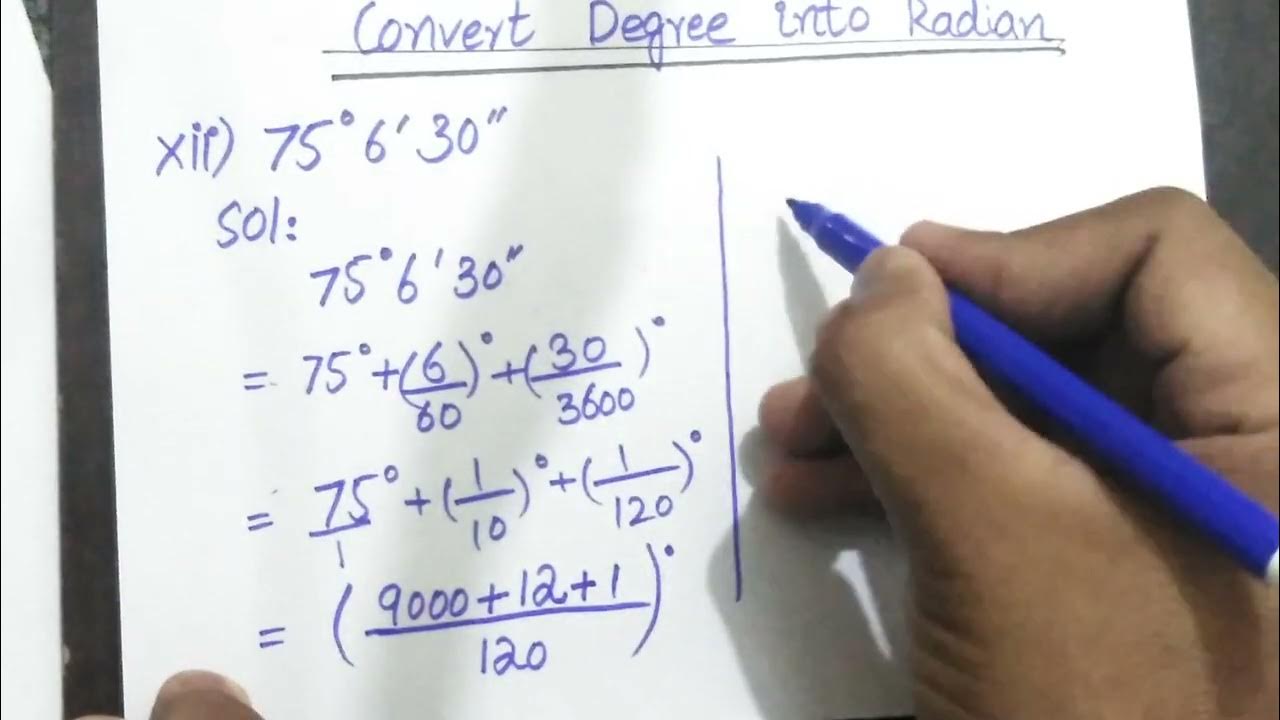 Convert Degree into Radian
xii) 75° 6' 30"
Sol:
75° 6' 30"
= 75° + (6/60)° + (30/3600)°
= 75°/1 + (1/10)° + (1/120)°
= (9000+12+1/120)°